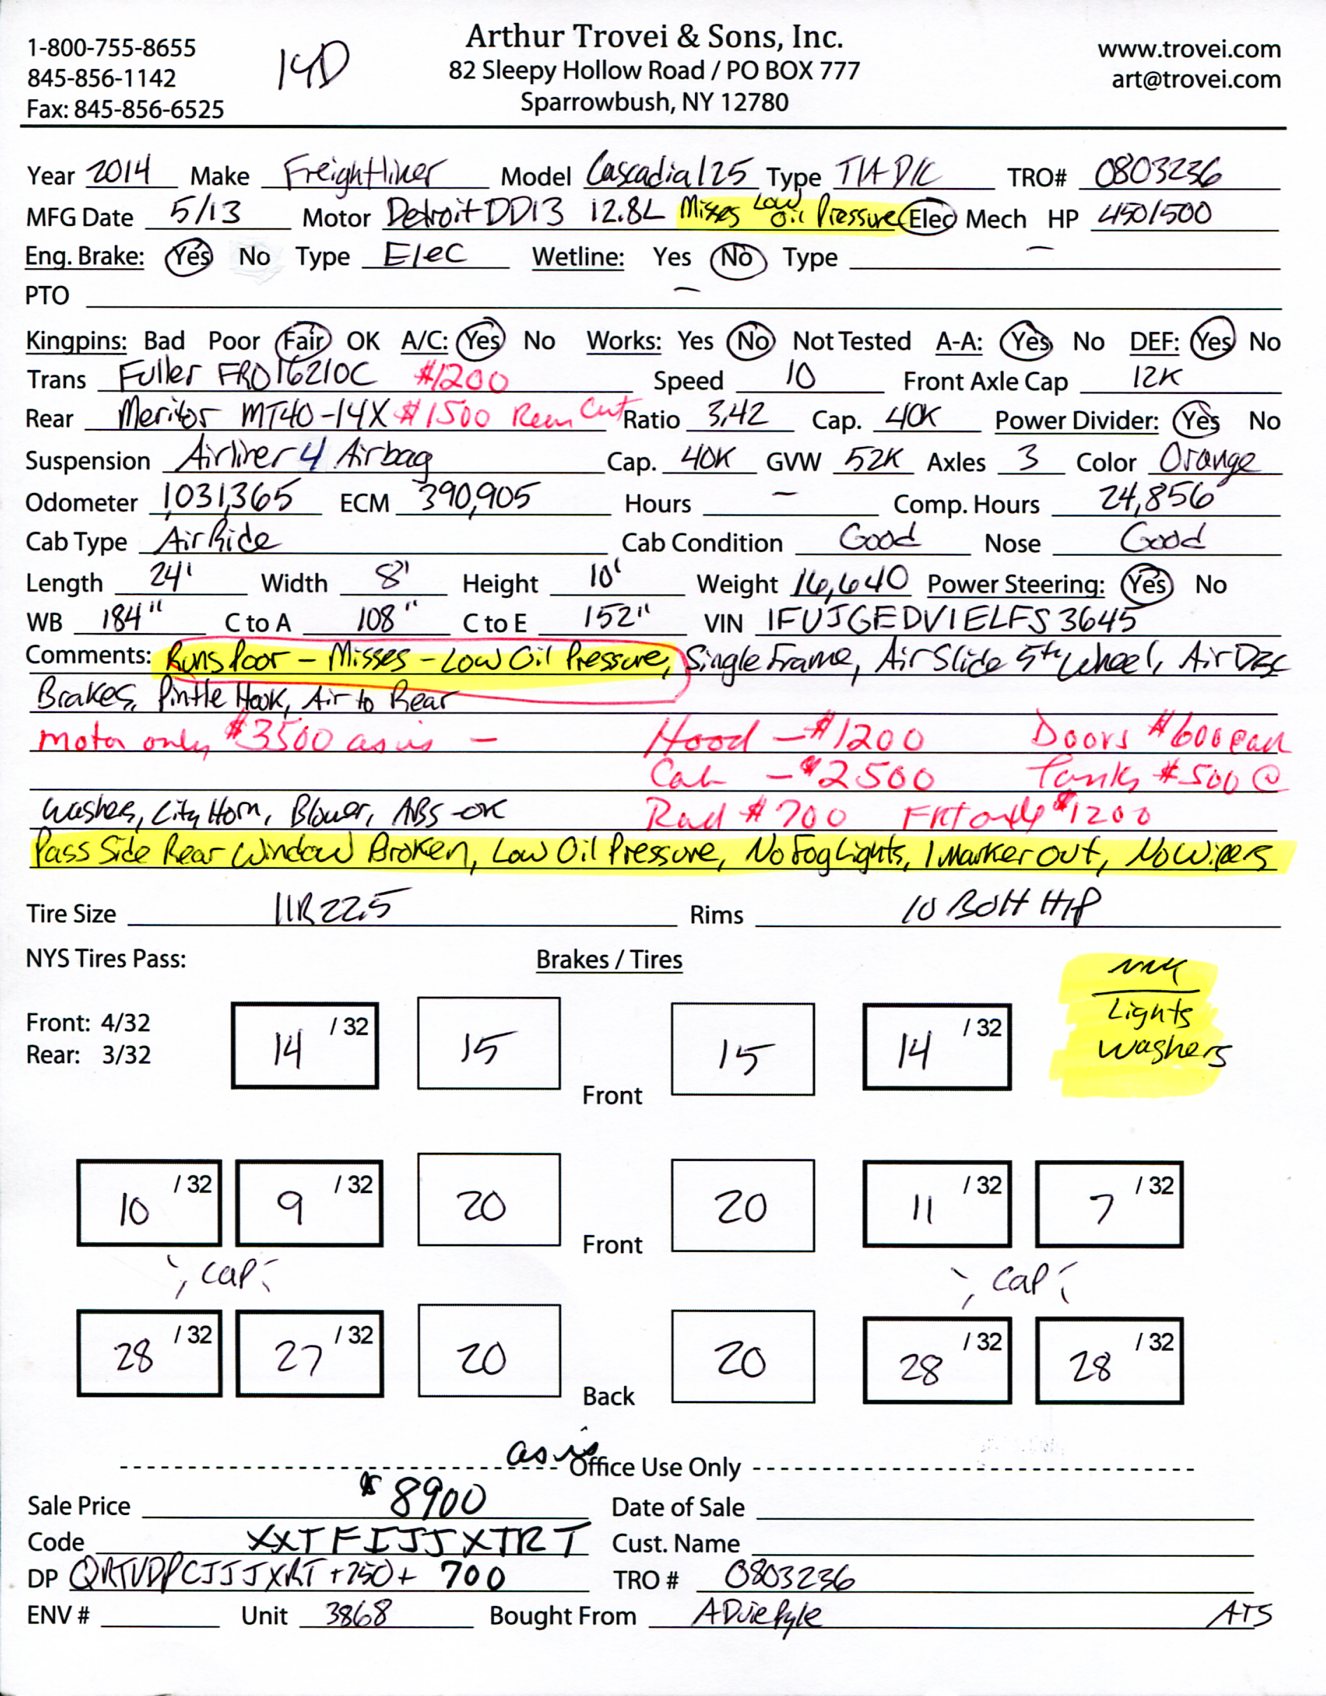 1-800-755-8655
845-856-1142
Fax: 845-856-6525
14D
Arthur Trovei & Sons, Inc.
82 Sleepy Hollow Road / PO BOX 777
Sparrowbush, NY 12780
www.trovei.com
art@trovei.com
Year 2014 Make Freightliner Model Cascadia 125 Type T/A D/C TRO# 0803236
MFG Date 5/13 Motor Detroit DD13 12.8L Misses Low Oil Pressure Elec Mech HP 450/500
Eng. Brake: Yes No Type Elec Wetline: Yes No Type —
PTO —
Kingpins: Bad Poor Fair OK A/C: Yes No Works: Yes No Not Tested A-A: Yes No DEF: Yes No
Trans Fuller FRO16210C $1200 Speed 10 Front Axle Cap 12K
Rear Meritor MT40-14X $1500 Rear Cut Ratio 3.42 Cap. 40K Power Divider: Yes No
Suspension Airliner 4 Airbag Cap. 40K GVW 52K Axles 3 Color Orange
Odometer 1,031,365 ECM 390,905 Hours — Comp. Hours 24,856
Cab Type Air Ride Cab Condition Good Nose Good
Length 24' Width 8' Height 10' Weight 16,640 Power Steering: Yes No
WB 184" C to A 108" C to E 152" VIN 1FUJGEDV1ELFS3645
Comments: Runs Poor - Misses - Low Oil Pressure, Single Frame, Air Slide 5th Wheel, Air Disc
Brakes, Pintle Hook, Air to Rear
Motor only $3500 as is - Hood - $1200 Doors $600 each
Cab - $2500 Tanks $500 @
Washer, City Horn, Blower, ABS - OK Rad $700 FRT axle $1200
Pass Side Rear Window Broken, Low Oil Pressure, No Fog Lights, 1 Marker Out, No Wipers
Tire Size 11R22.5 Rims 10 Bolt H/P
NYS Tires Pass: Brakes / Tires
Lights
Washers
Front: 4/32
Rear: 3/32
14 /32 15 Front 15 14 /32
10 /32 9 /32 20 Front 20 11 /32 7 /32
Cap Cap
28 /32 27 /32 20 Back 20 28 /32 28 /32
as is
Office Use Only
Sale Price $8900 Date of Sale
Code XXTFIJJXTRT Cust. Name
DP QRTVDPCJJJXRT +250+ 700 TRO # 0803236
ENV # Unit 3868 Bought From ATS